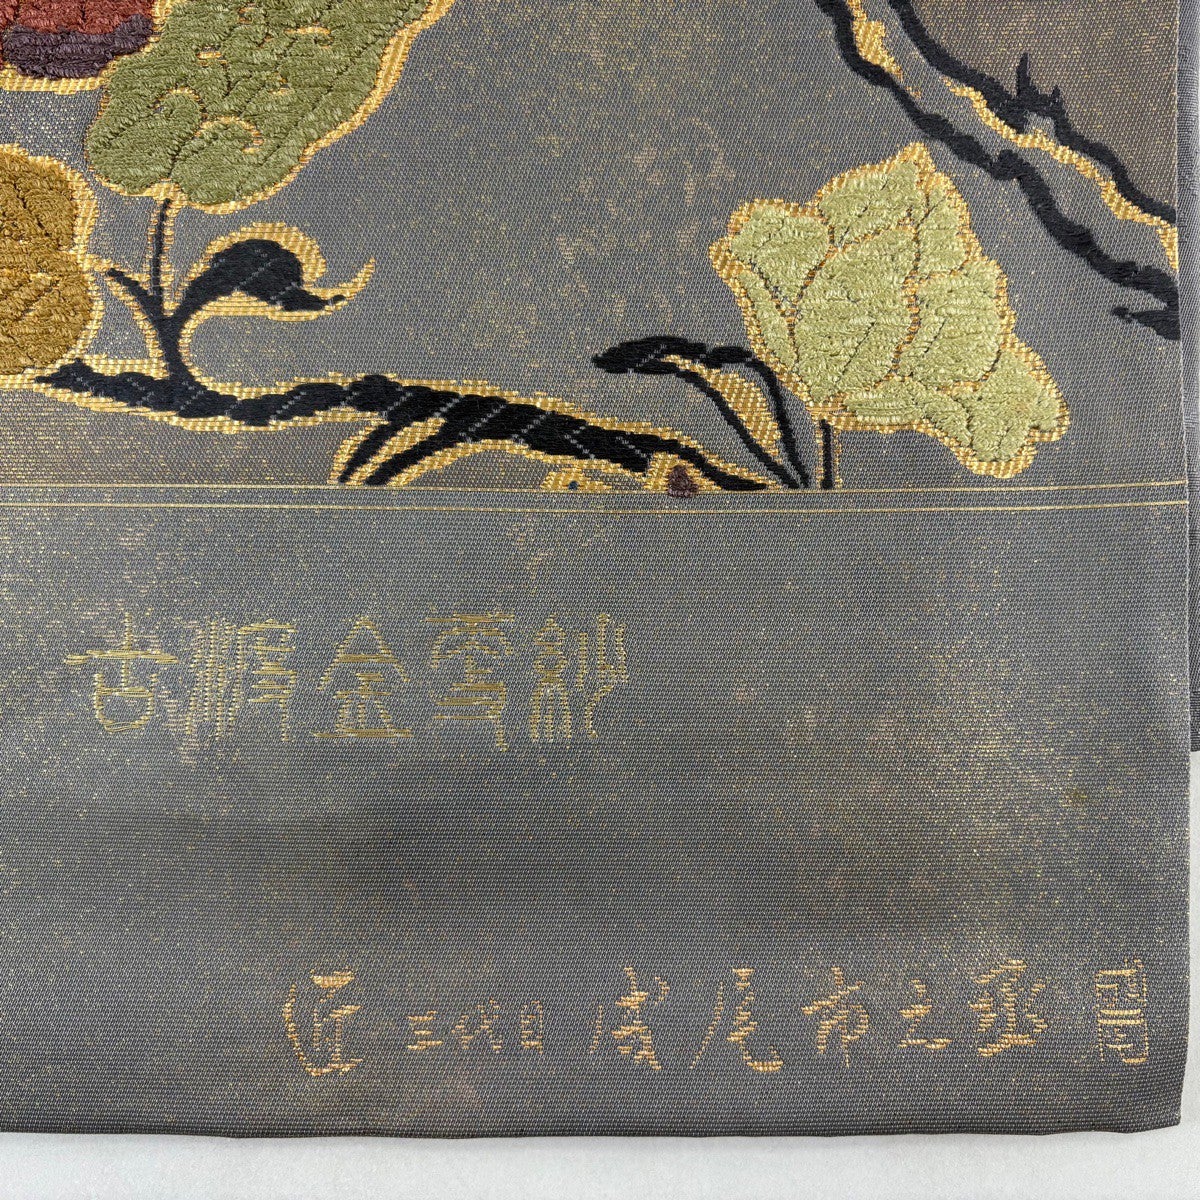 古瀬金雪紗
匠 三代目 成尾市之丞